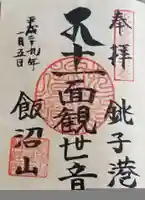 奉拝
銚子港
十一面観世音
飯沼山
平成二十九年
一月五日